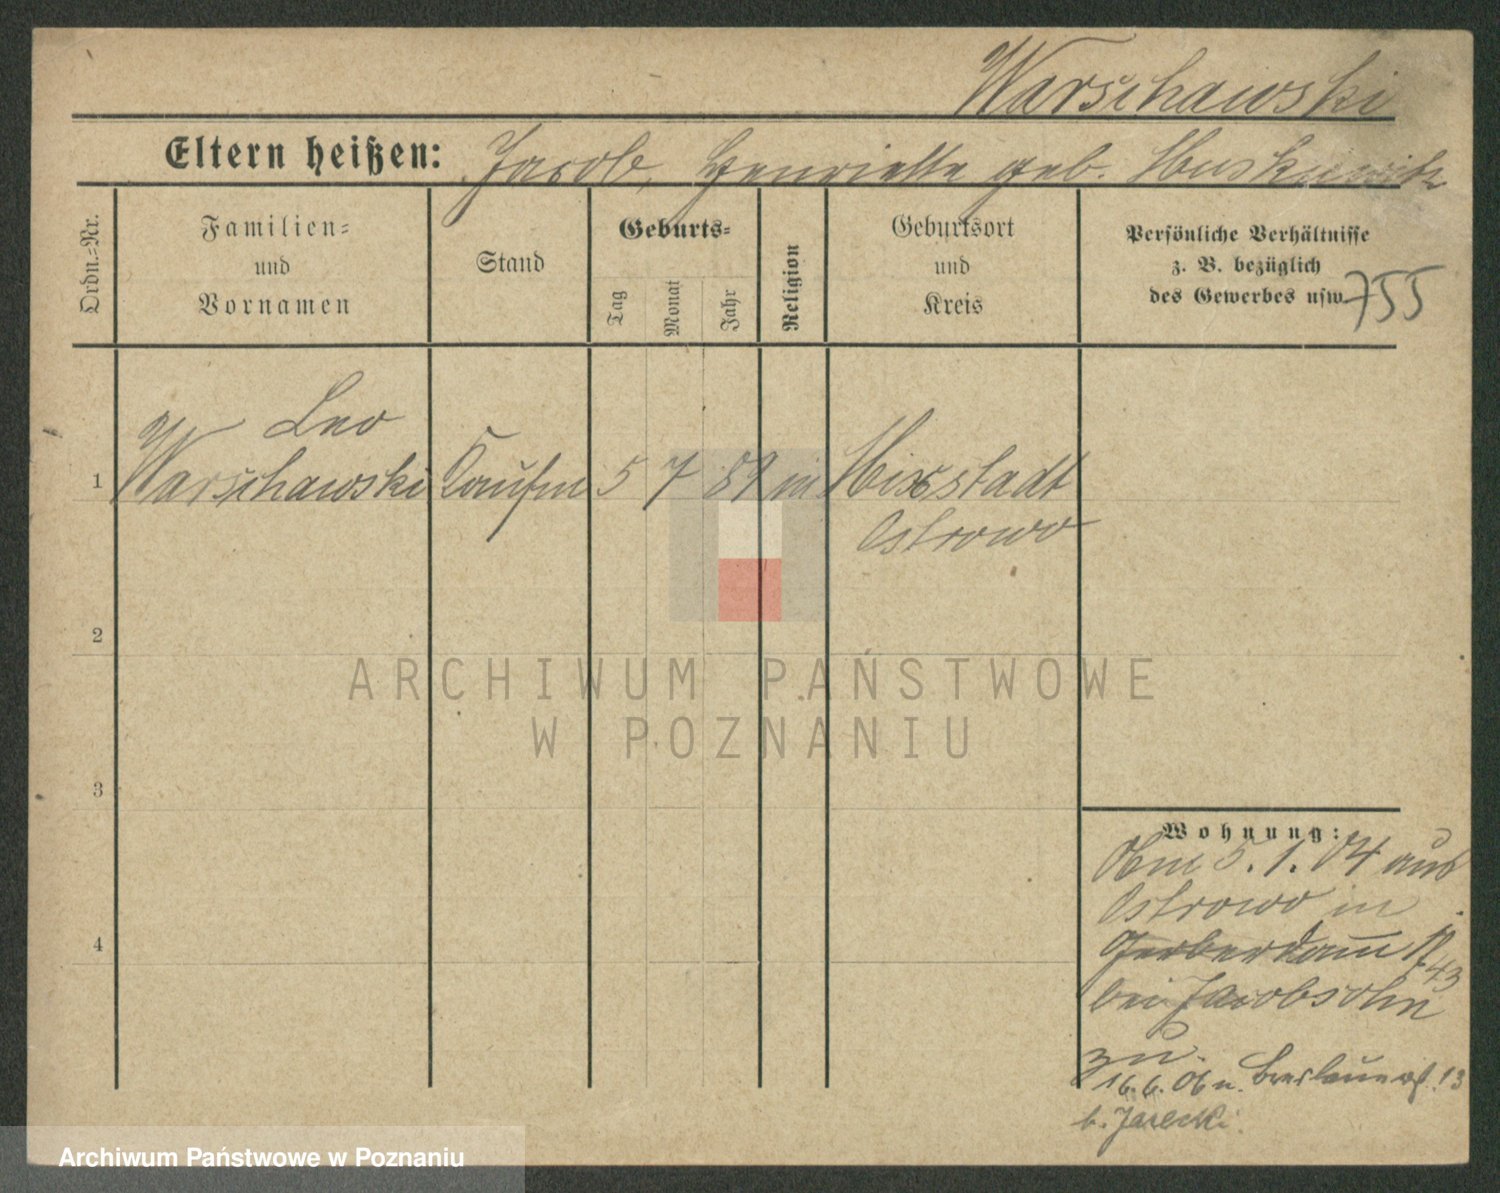 Warschawski
Eltern heißen: Jacob, Henriette geb.
Ordn.-Nr.
Familien-
und
Vornamen
Stand
Geburts-
Tag
Monat
Jahr
Religion
Geburtsort
und
Kreis
Persönliche Verhältnisse
z. B. bezüglich
des Gewerbes usw.
755
Leo
1 Warschawski Kaufm 5 7 89 m Mixstadt
Ostrowo
2
3
4
Wohnung:
5.1.04 aus
Ostrowo in
Gerberdamm
bei Jacobsohn
zu.
16.6.06 n. Breslauerst. 13
b. Jarecki
ARCHIWUM PAŃSTWOWE
W POZNANIU
Archiwum Państwowe w Poznaniu